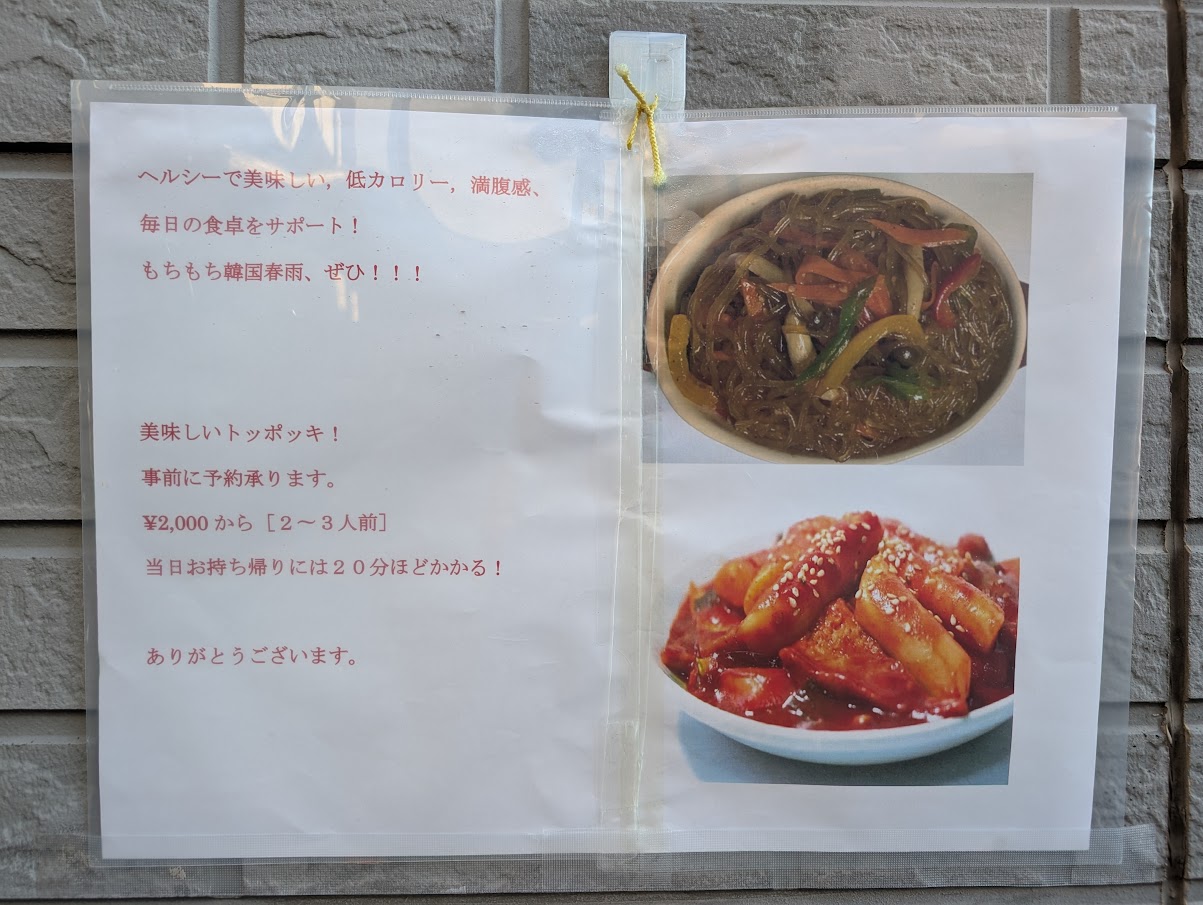 ヘルシーで美味しい,低カロリー,満腹感、
毎日の食卓をサポート！
もちもち韓国春雨、ぜひ！！！
美味しいトッポッキ！
事前に予約承ります。
¥2,000から［２～３人前］
当日お持ち帰りには２０分ほどかかる！
ありがとうございます。